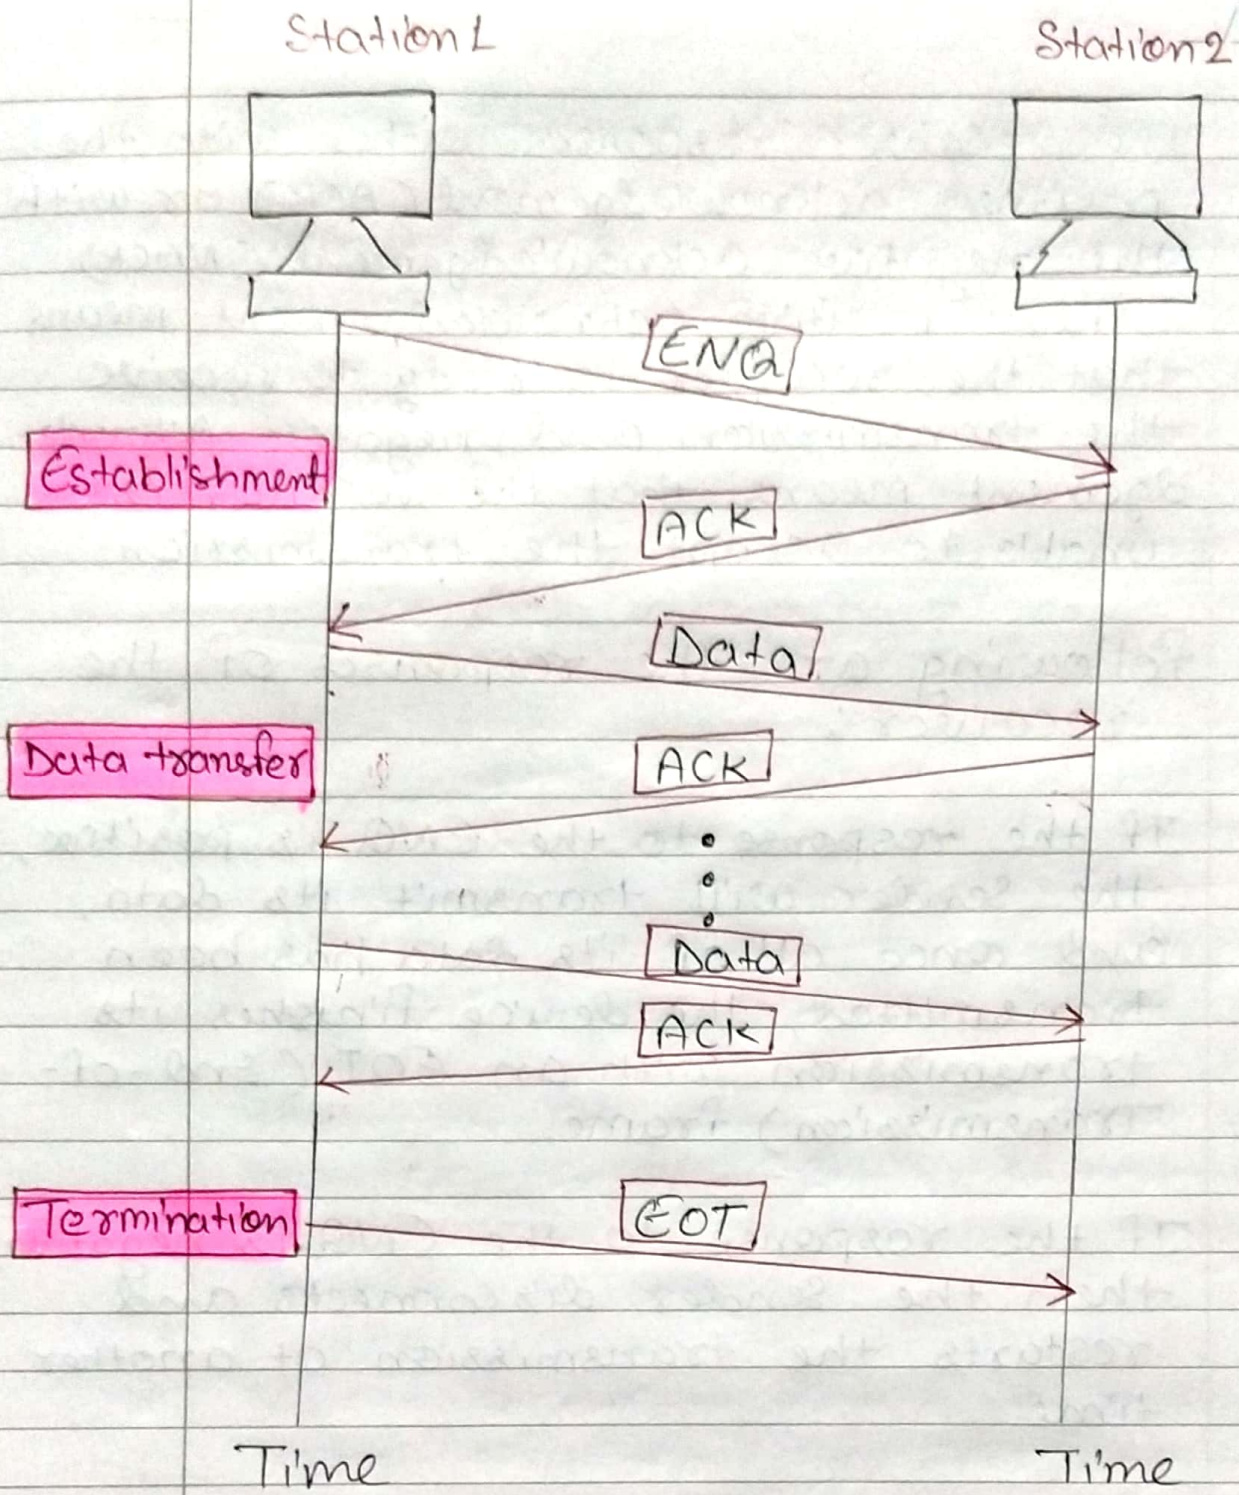 Station 1
Station 2
ENQ
Establishment
ACK
Data
Data transfer
ACK
Data
ACK
Termination
EOT
Time
Time